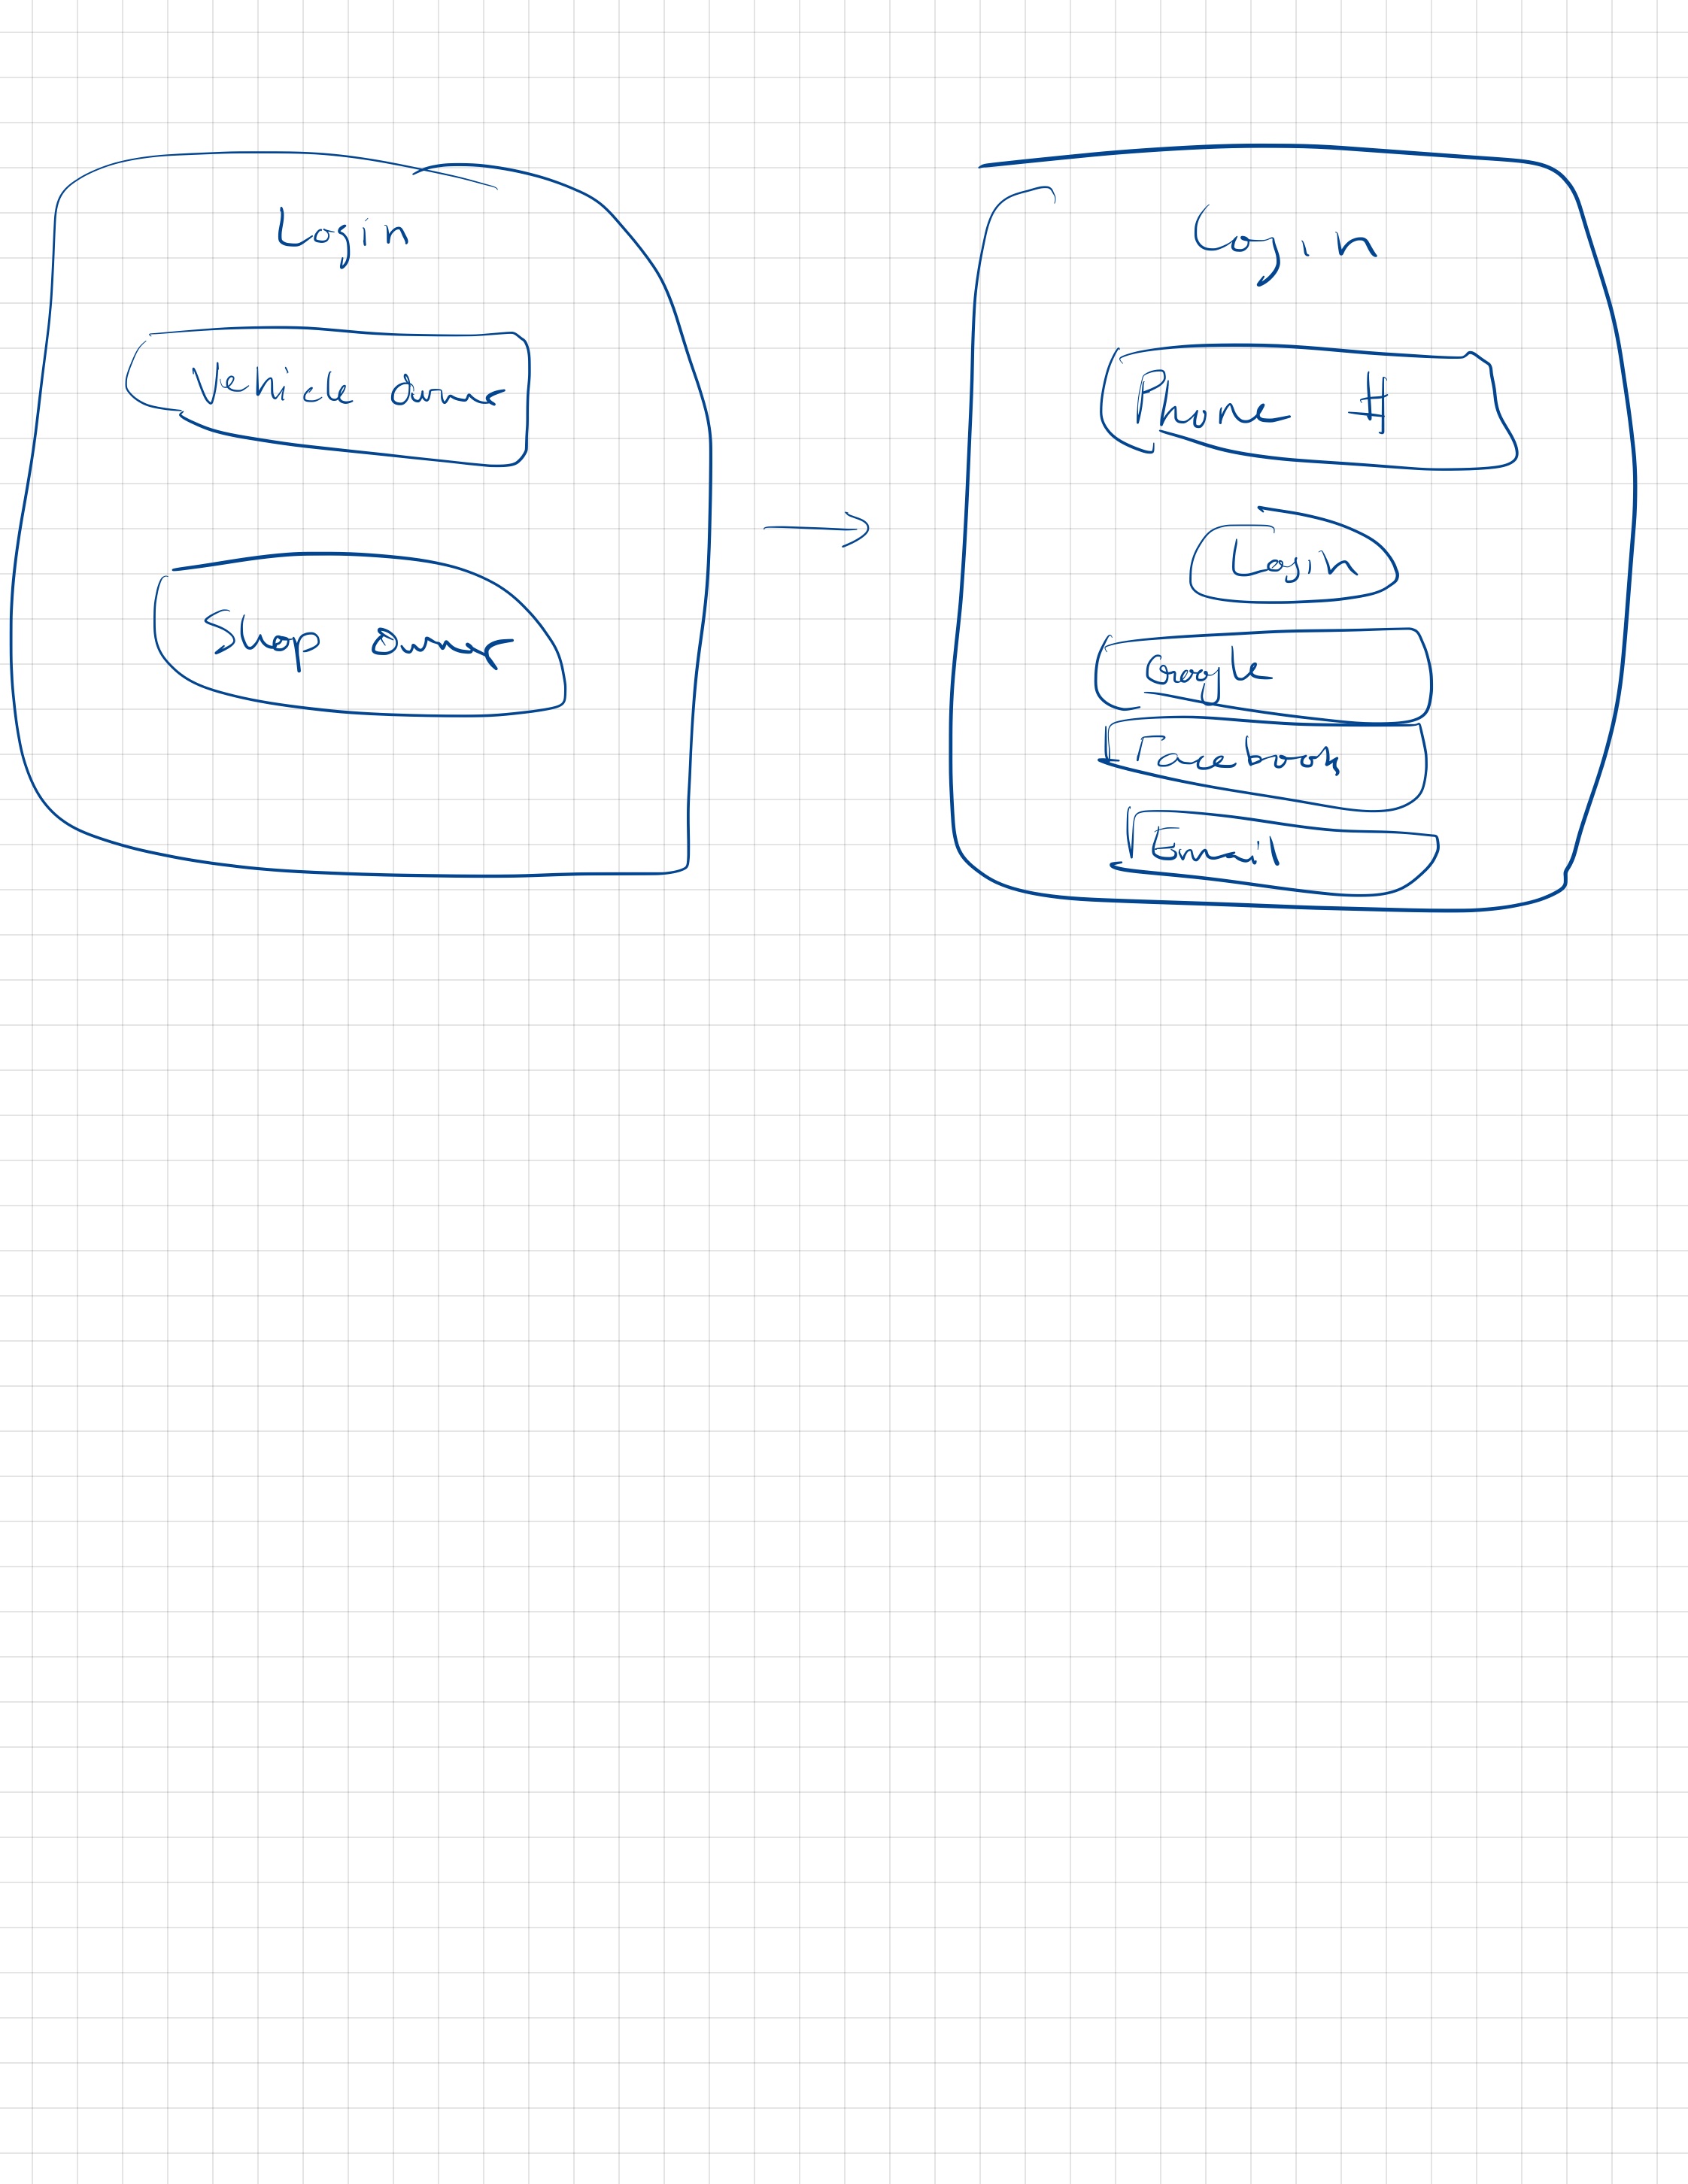 Login
Vehicle owner
Shop owner
Login
Phone #
Login
Google
Facebook
Email